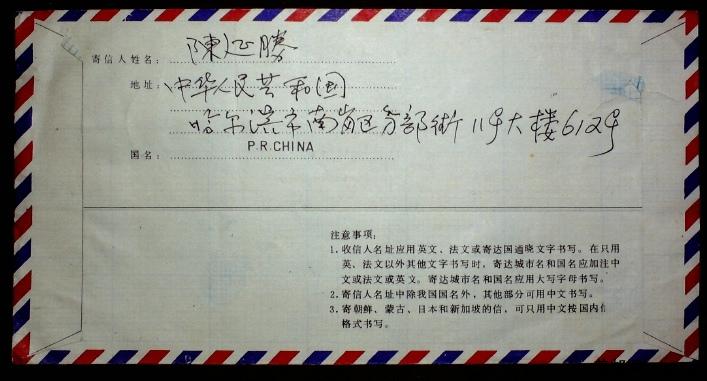 寄信人姓名： 陳延勝
地址： 中华人民共和国
哈尔滨市南岗区分部街11号大楼612号
国名： P.R.CHINA
注意事项：
1. 收信人名址应用英文、法文或寄达国通晓文字书写。在只用
英、法文以外其他文字书写时，寄达城市名和国名应加注中
文或法文或英文。寄达城市名和国名应用大写字母书写。
2. 寄信人名址中除我国国名外，其他部分可用中文书写。
3. 寄朝鲜、蒙古、日本和新加坡的信，可只用中文按国内信
格式书写。